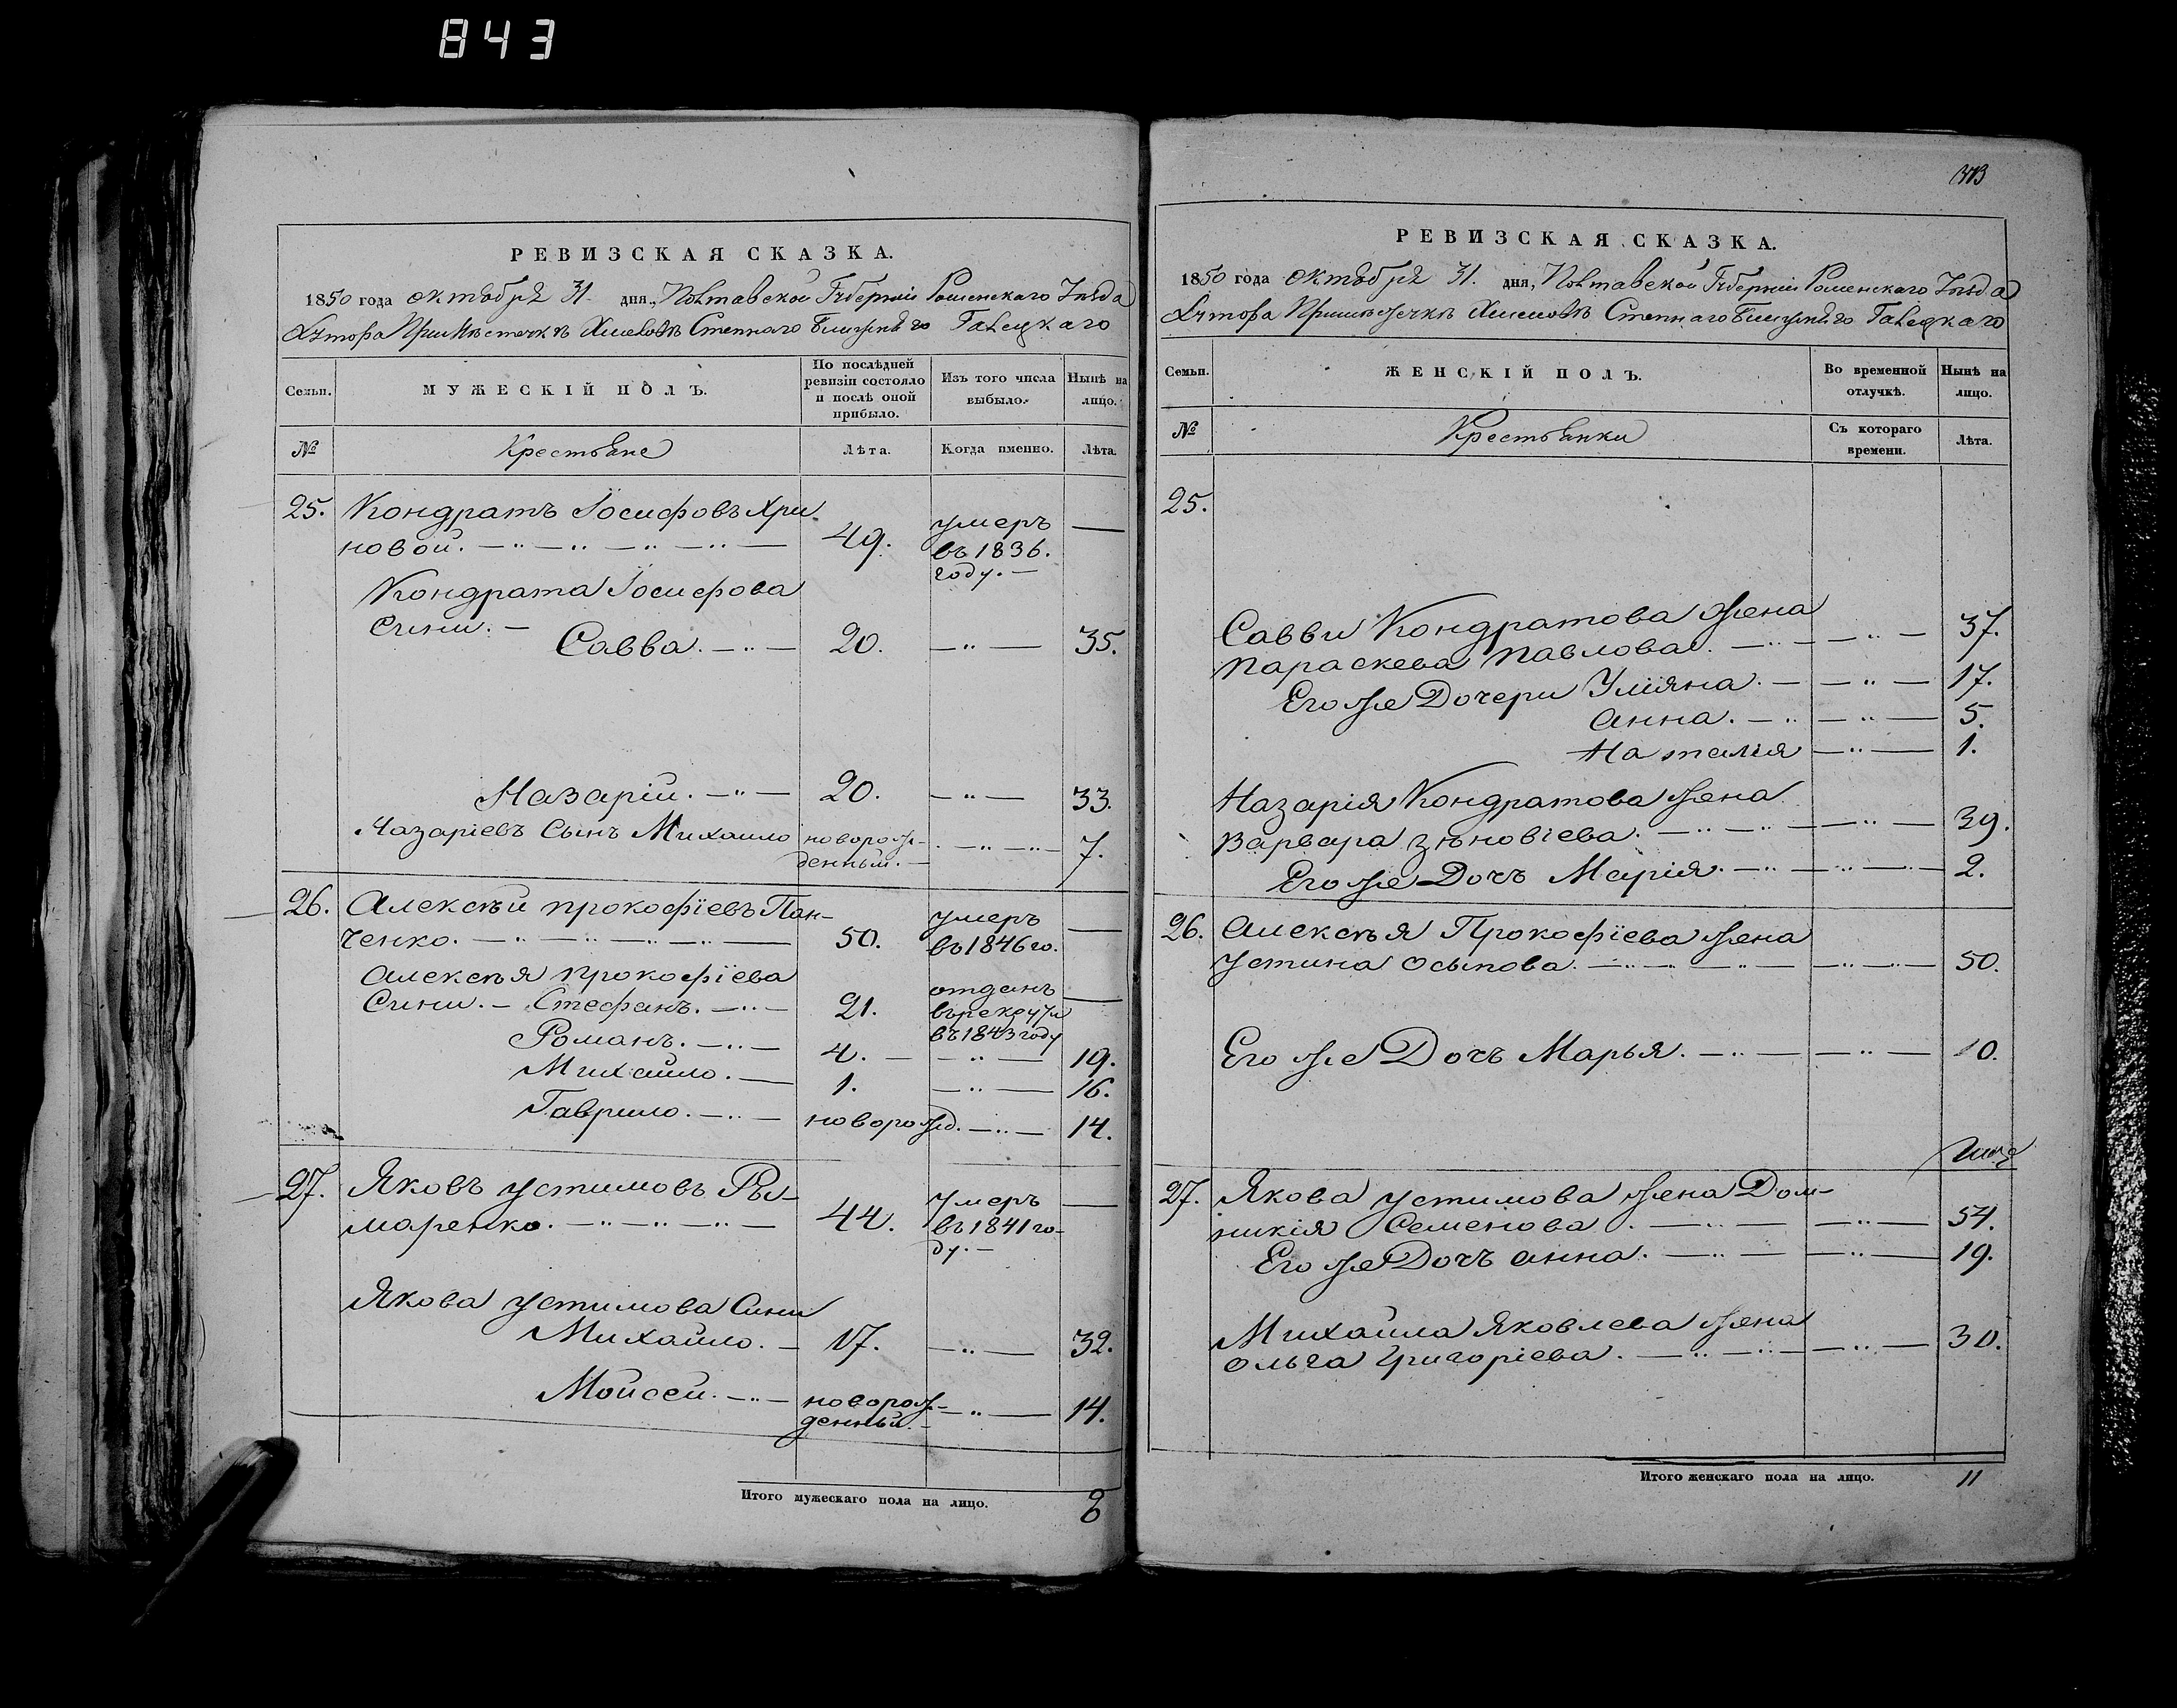 843
РЕВИЗСКАЯ СКАЗКА.
1850 года октября 31. дня, Полтавской Губернии Роменскаго Уѣзда
Хутора при Мѣстечкѣ Хмеловѣ Степнаго Галецкаго
Семьи. МУЖЕСКІЙ ПОЛЪ. По послѣдней ревизіи состояло и послѣ оной прибыло. Изъ того числа выбыло. Нынѣ на лицо.
№ Крестьяне Лѣта. Когда именно. Лѣта.
25. Кондратъ Іосифовъ Хри
новой. 49. умеръ въ 1836. году. —
Кондрата Іосифова
Сини. — Савва. 20. 35.
Назарій. 20. 33.
Назаріевъ Сынъ Михаило новорожденный. — 7.
26. Алексѣй прокофіевъ Пан-
ченко. 50. умеръ въ 1846 го.
Алексѣя прокофіева
Сини. — Стефанъ. 21. отданъ въ рекрути въ 1843 году
Романъ. 4. 19.
Михаило. 1. 16.
Гаврило. новорожд. 14.
27. Яковъ устимовъ Ры-
маренко. 44. умеръ въ 1841 го-ду. —
Якова устимова Сини
Михаило. 17. 32.
Мойсей. новорож-денный. 14.
Итого мужескаго пола на лицо. 8
373
РЕВИЗСКАЯ СКАЗКА.
1850 года октября 31. дня, Полтавской Губерніи Роменскаго Уѣзда
Хутора при мѣстечкѣ Хмеловѣ Степнаго Галецкаго
Семьи. ЖЕНСКІЙ ПОЛЪ. Во временной отлучкѣ. Нынѣ на лицо.
№ Крестьянки Съ котораго времени. Лѣта.
25.
Савви Кондратова жена
Параскева Павлова. 37.
Его же Дочери Уліяна. 17.
Анна. 5.
Наталія 1.
Назарія Кондратова жена
Варвара Зѣновіева. 39.
Его же Дочъ Марія. 2.
26. Алексѣя Прокофіева жена
Устина Осипова. 50.
Его же Дочъ Марья. 10.
27. Якова устимова жена Дом-
никія Семенова. 54.
Его же Дочъ Анна. 19.
Михаила Яковлева жена
Ольга Григоріева. 30.
Итого женскаго пола на лицо. 11